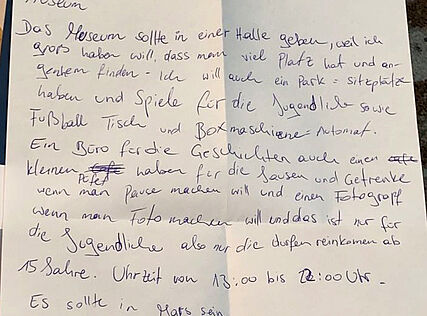 Museum
Das Museum sollte in einer Halle geben, weil ich
groß haben will, dass man viel Platz hat und an-
genehm finden - Ich will auch ein Park = Sitzplätze
haben und Spiele für die Jugendliche sowie
Fußball Tisch und Boxmaschiene = Automat.
Ein Büro für die Geschichten auch einen
kleinen haben für die Jausen und Getrenke
wenn man Pause machen will und einen Fotograff
wenn man Foto machen will und das ist nur für
die Jugendliche also nur die dürfen reinkomen ab
15 Jahre. Uhrzeit von 13:00 bis :00 Uhr.
Es sollte in Mars sein